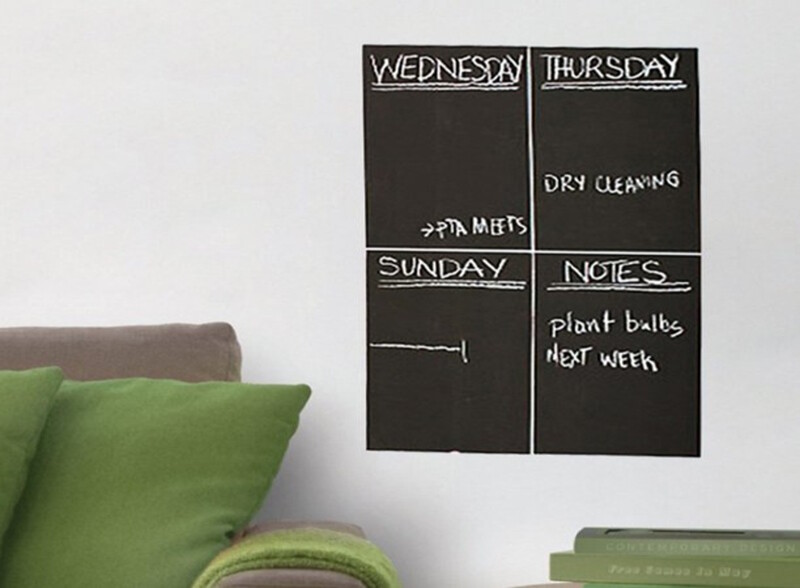 WEDNESDAY
→PTA MEETS
THURSDAY
DRY CLEANING
SUNDAY
NOTES
plant bulbs
NEXT WEEK
CONTEMPORARY DESIGN
Free Comes in May